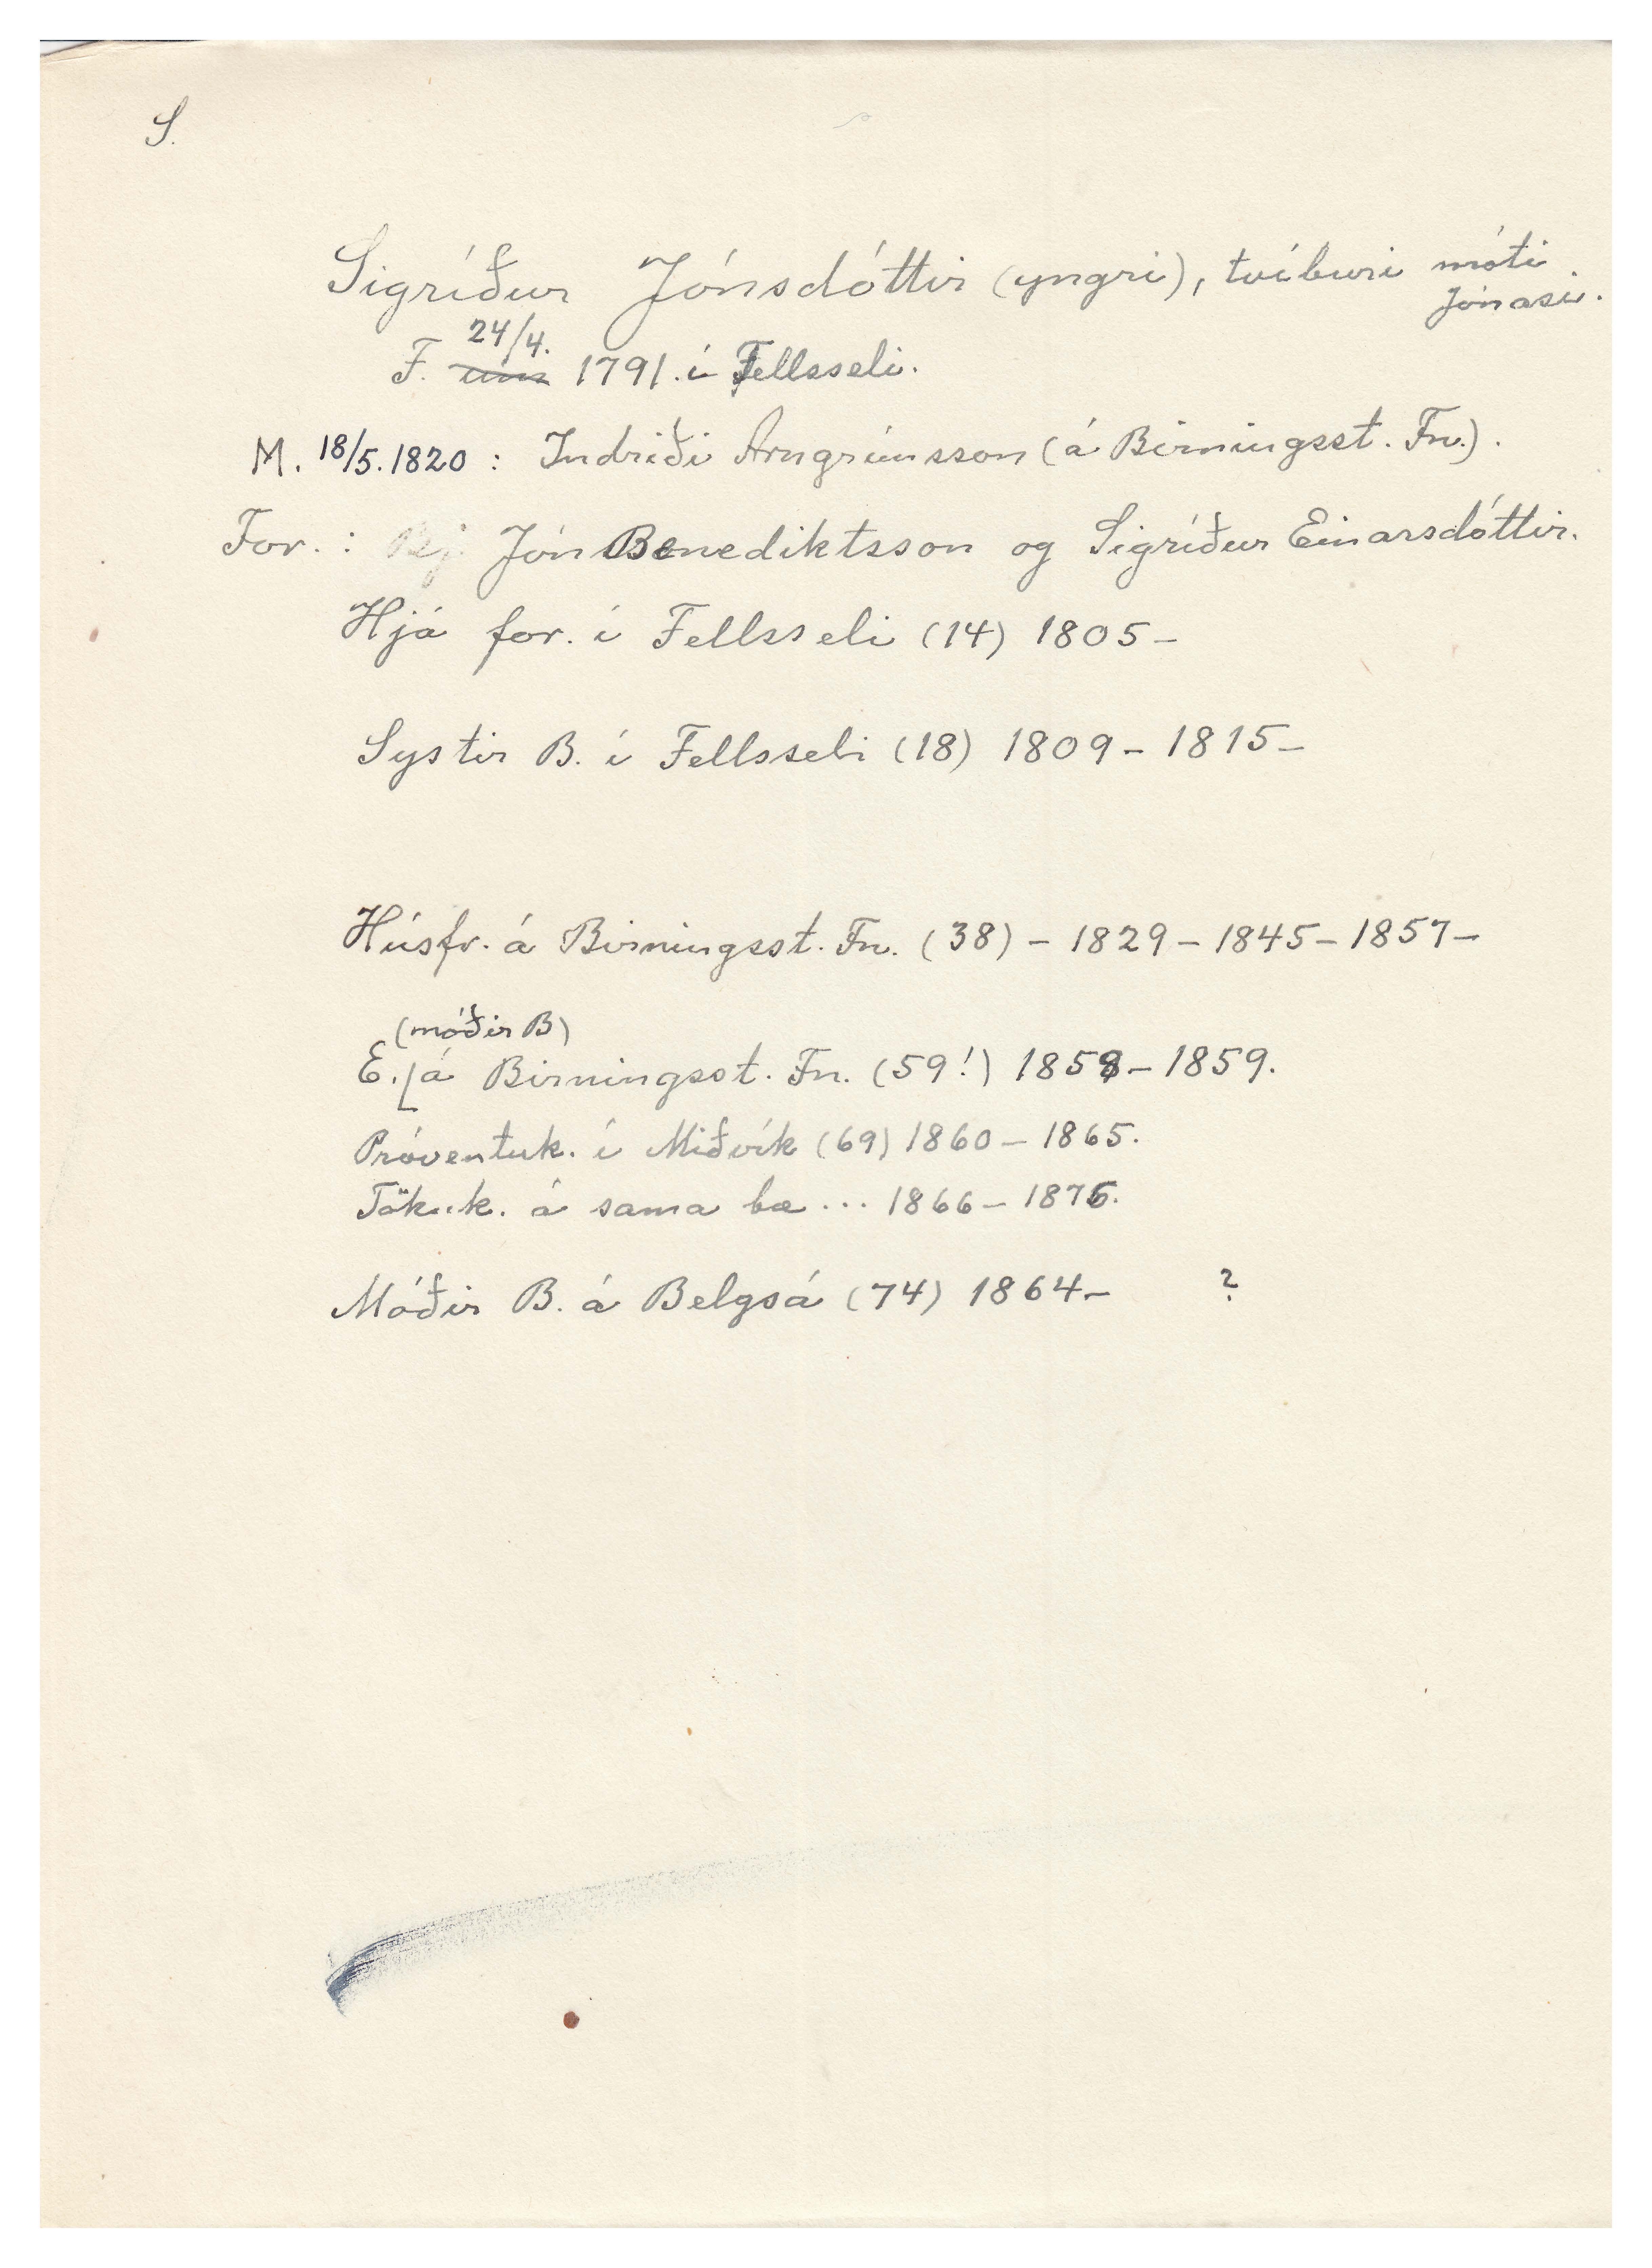 S.
Sigríður Jónsdóttir (yngri), tvíburi móti
Jónasi.
24/4.
F. um 1791. í Fellsseli.
M. 18/5. 1820 : Indriði Arngrímsson (á Birningsst. Fn.).
For. : Jón Benediktsson og Sigríður Einarsdóttir.
Hjá for. í Fellsseli (14) 1805–
Systir B. í Fellsseli (18) 1809 – 1815 –
Húsfr. á Birningsst. Fn. (38) – 1829 – 1845 – 1857 –
(móðir B)
E. á Birningsst. Fn. (59!) 1858 – 1859.
Próventuk. í Miðvík (69) 1860 – 1865.
Tökuk. á sama bæ ... 1866 – 1876.
Móðir B. á Belgsá (74) 1864 – ?